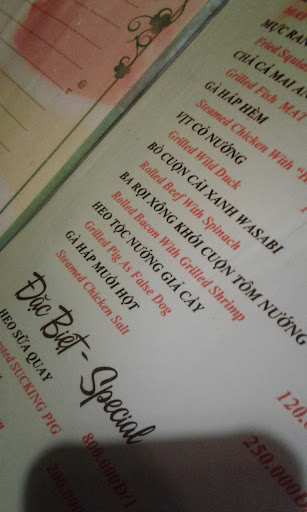 MỰC RAN
Fried Squid
CHẢ CÁ MAI AN
Grilled Fish MAT
GÀ HẤP HÈM
Steamed Chicken With
VỊT CỎ NƯỚNG
Grilled Wild Duck
BÒ CUỘN CẢI XANH WASABI
Rolled Beef With Spinach
BA RỌI XÔNG KHÓI CUỘN TÔM NƯỚNG
Rolled Bacon With Grilled Shrimp
HEO TỘC NƯỚNG GIẢ CẦY
Grilled Pig As False Dog
GÀ HẤP MUỐI HỘT
Steamed Chicken Salt
120.0
250.000
Đặc Biệt - Special
HEO SỮA QUAY
SUCKING PIG
800.000Đ/1